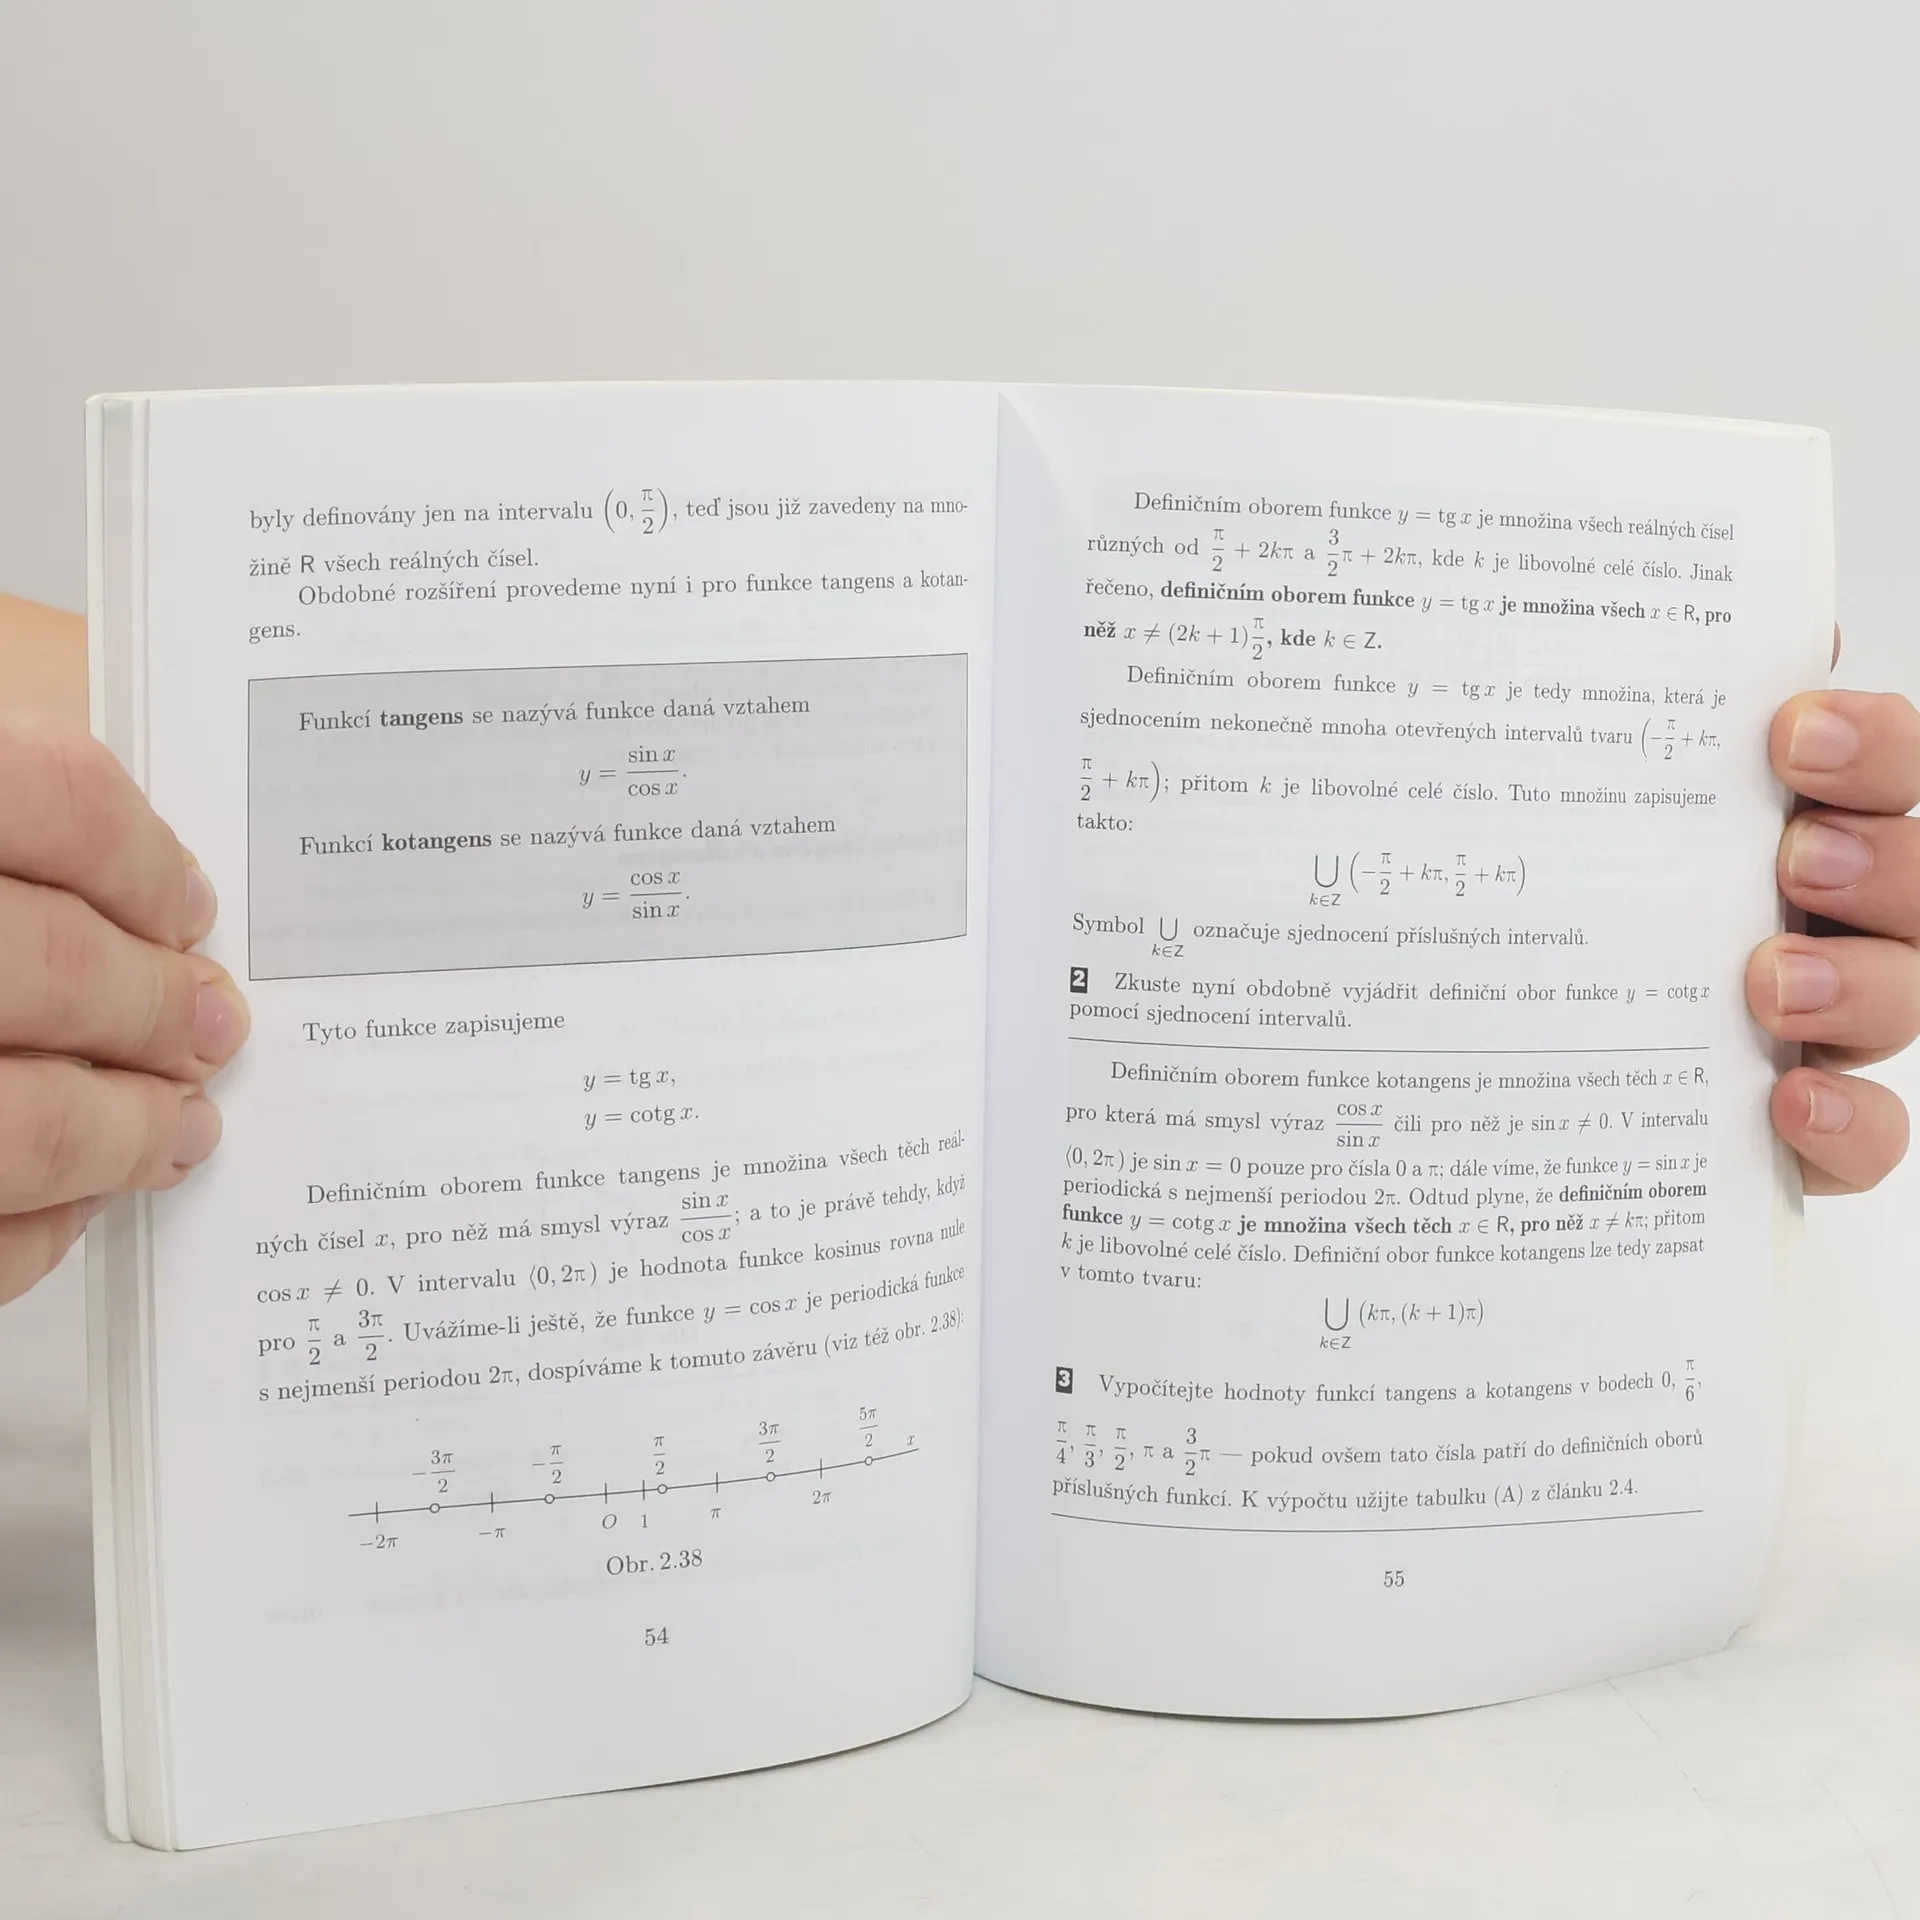 byly definovány jen na intervalu (0, π/2), teď jsou již zavedeny na mno-
žině R všech reálných čísel.
Obdobné rozšíření provedeme nyní i pro funkce tangens a kotan-
gens.
Funkcí tangens se nazývá funkce daná vztahem
y = sin x / cos x.
Funkcí kotangens se nazývá funkce daná vztahem
y = cos x / sin x.
Tyto funkce zapisujeme
y = tg x,
y = cotg x.
Definičním oborem funkce tangens je množina všech těch reál-
ných čísel x, pro něž má smysl výraz sin x / cos x; a to je právě tehdy, když
cos x ≠ 0. V intervalu ⟨0, 2π) je hodnota funkce kosinus rovna nule
pro π/2 a 3π/2. Uvážíme-li ještě, že funkce y = cos x je periodická funkce
s nejmenší periodou 2π, dospíváme k tomuto závěru (viz též obr. 2.38):
−3π/2 −π/2 π/2 3π/2 5π/2 x
−2π −π O 1 π 2π
Obr. 2.38
54
Definičním oborem funkce y = tg x je množina všech reálných čísel
různých od π/2 + 2kπ a 3/2π + 2kπ, kde k je libovolné celé číslo. Jinak
řečeno, definičním oborem funkce y = tg x je množina všech x ∈ R, pro
něž x ≠ (2k + 1)π/2, kde k ∈ Z.
Definičním oborem funkce y = tg x je tedy množina, která je
sjednocením nekonečně mnoha otevřených intervalů tvaru (−π/2 + kπ,
π/2 + kπ); přitom k je libovolné celé číslo. Tuto množinu zapisujeme
takto:
⋃ k∈Z (−π/2 + kπ, π/2 + kπ)
Symbol ⋃ k∈Z označuje sjednocení příslušných intervalů.
2 Zkuste nyní obdobně vyjádřit definiční obor funkce y = cotg x
pomocí sjednocení intervalů.
Definičním oborem funkce kotangens je množina všech těch x ∈ R,
pro která má smysl výraz cos x / sin x čili pro něž je sin x ≠ 0. V intervalu
⟨0, 2π) je sin x = 0 pouze pro čísla 0 a π; dále víme, že funkce y = sin x je
periodická s nejmenší periodou 2π. Odtud plyne, že definičním oborem
funkce y = cotg x je množina všech těch x ∈ R, pro něž x ≠ kπ; přitom
k je libovolné celé číslo. Definiční obor funkce kotangens lze tedy zapsat
v tomto tvaru:
⋃ k∈Z (kπ, (k + 1)π)
3 Vypočítejte hodnoty funkcí tangens a kotangens v bodech 0, π/6,
π/4, π/3, π/2, π a 3/2π — pokud ovšem tato čísla patří do definičních oborů
příslušných funkcí. K výpočtu užijte tabulku (A) z článku 2.4.
55